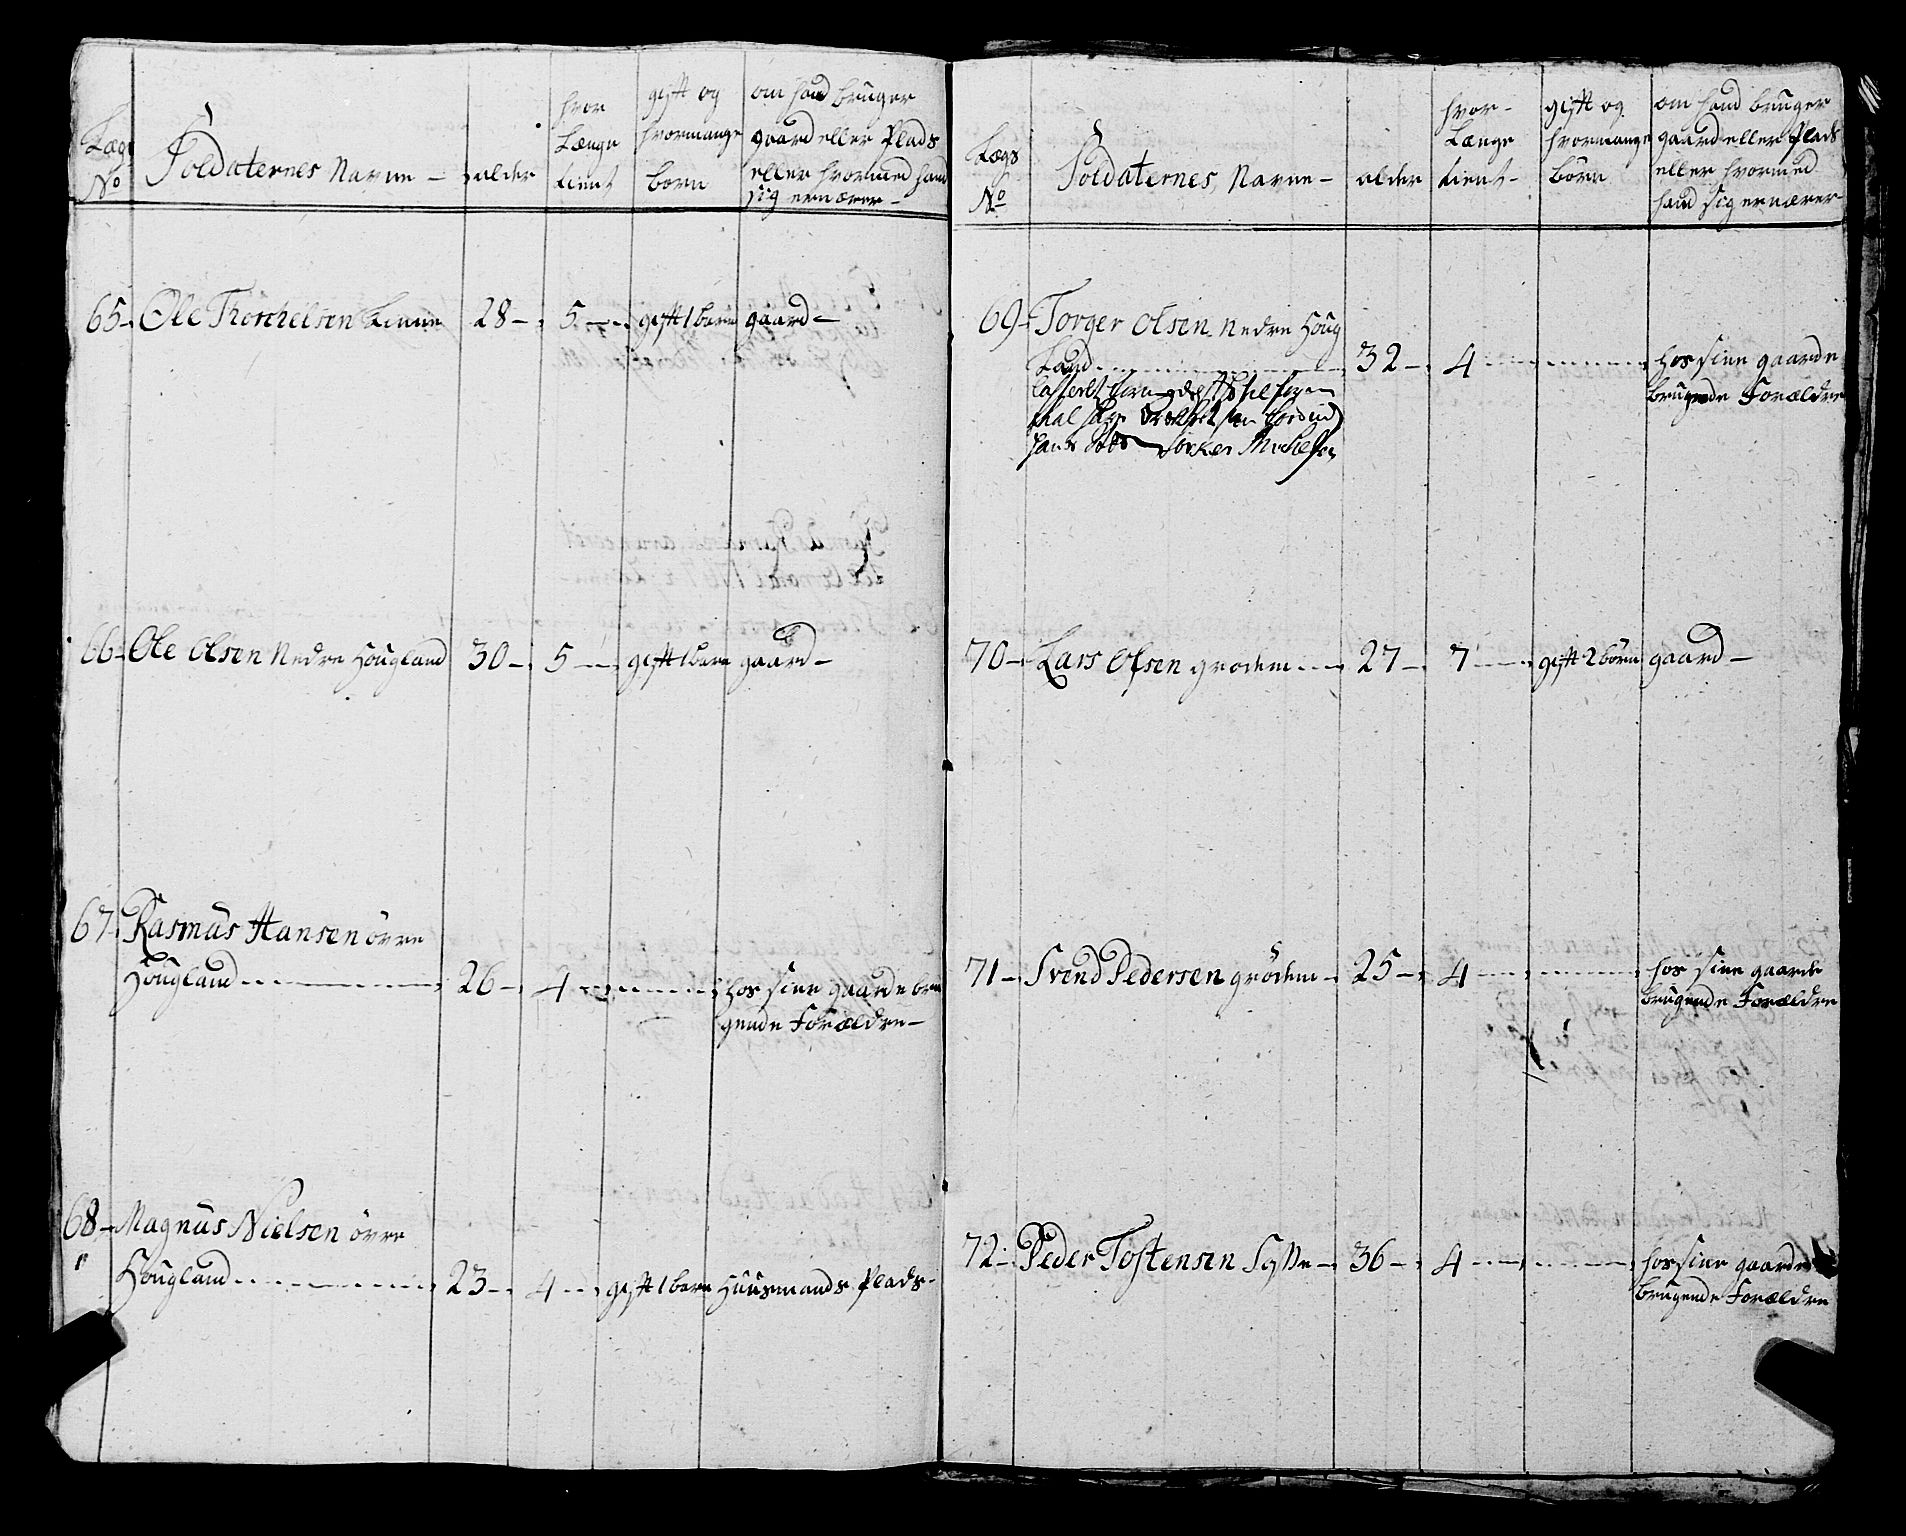 Lægs No
Soldaternes Navne - alder
hvor Længe tient
gift og hvormange born
om hand bruger gaard eller Plads eller hvormed hand sig ernærer -
65 - Ole Thorchelsen Linne 28 - 5 - gift 1 barn gaard -
66 - Ole Olsen Nedre Hougland 30 - 5 - gift 1 barn gaard -
67 - Rasmus Hansen övre
Hougland 26 - 4 - hos sine gaarde bru
gende Forældre -
68 - Magnus Nielsen övre
Hougland 23 - 4 - gift 1 barn Huusmands Plads -
Lægs No
Soldaternes Navne - alder
hvor- Længe tient -
gift og hvormange börn
om hand bruger gaard eller Plads eller hvormed hand sig ernærer -
69 - Torger Olsen Nedre Houg
Land 32 - 4 - hos sine gaarde
brugende Forældre
hans
70 - Lars Olsen grodem 27 - 7 - gift 2 börn gaard -
71 - Svend Pedersen grödem - 25 - 4 - hos sine gaarde
brugende Forældre
72 - Peder Tostensen - 36 - 4 - hos sine gaarde
brugende Forældre